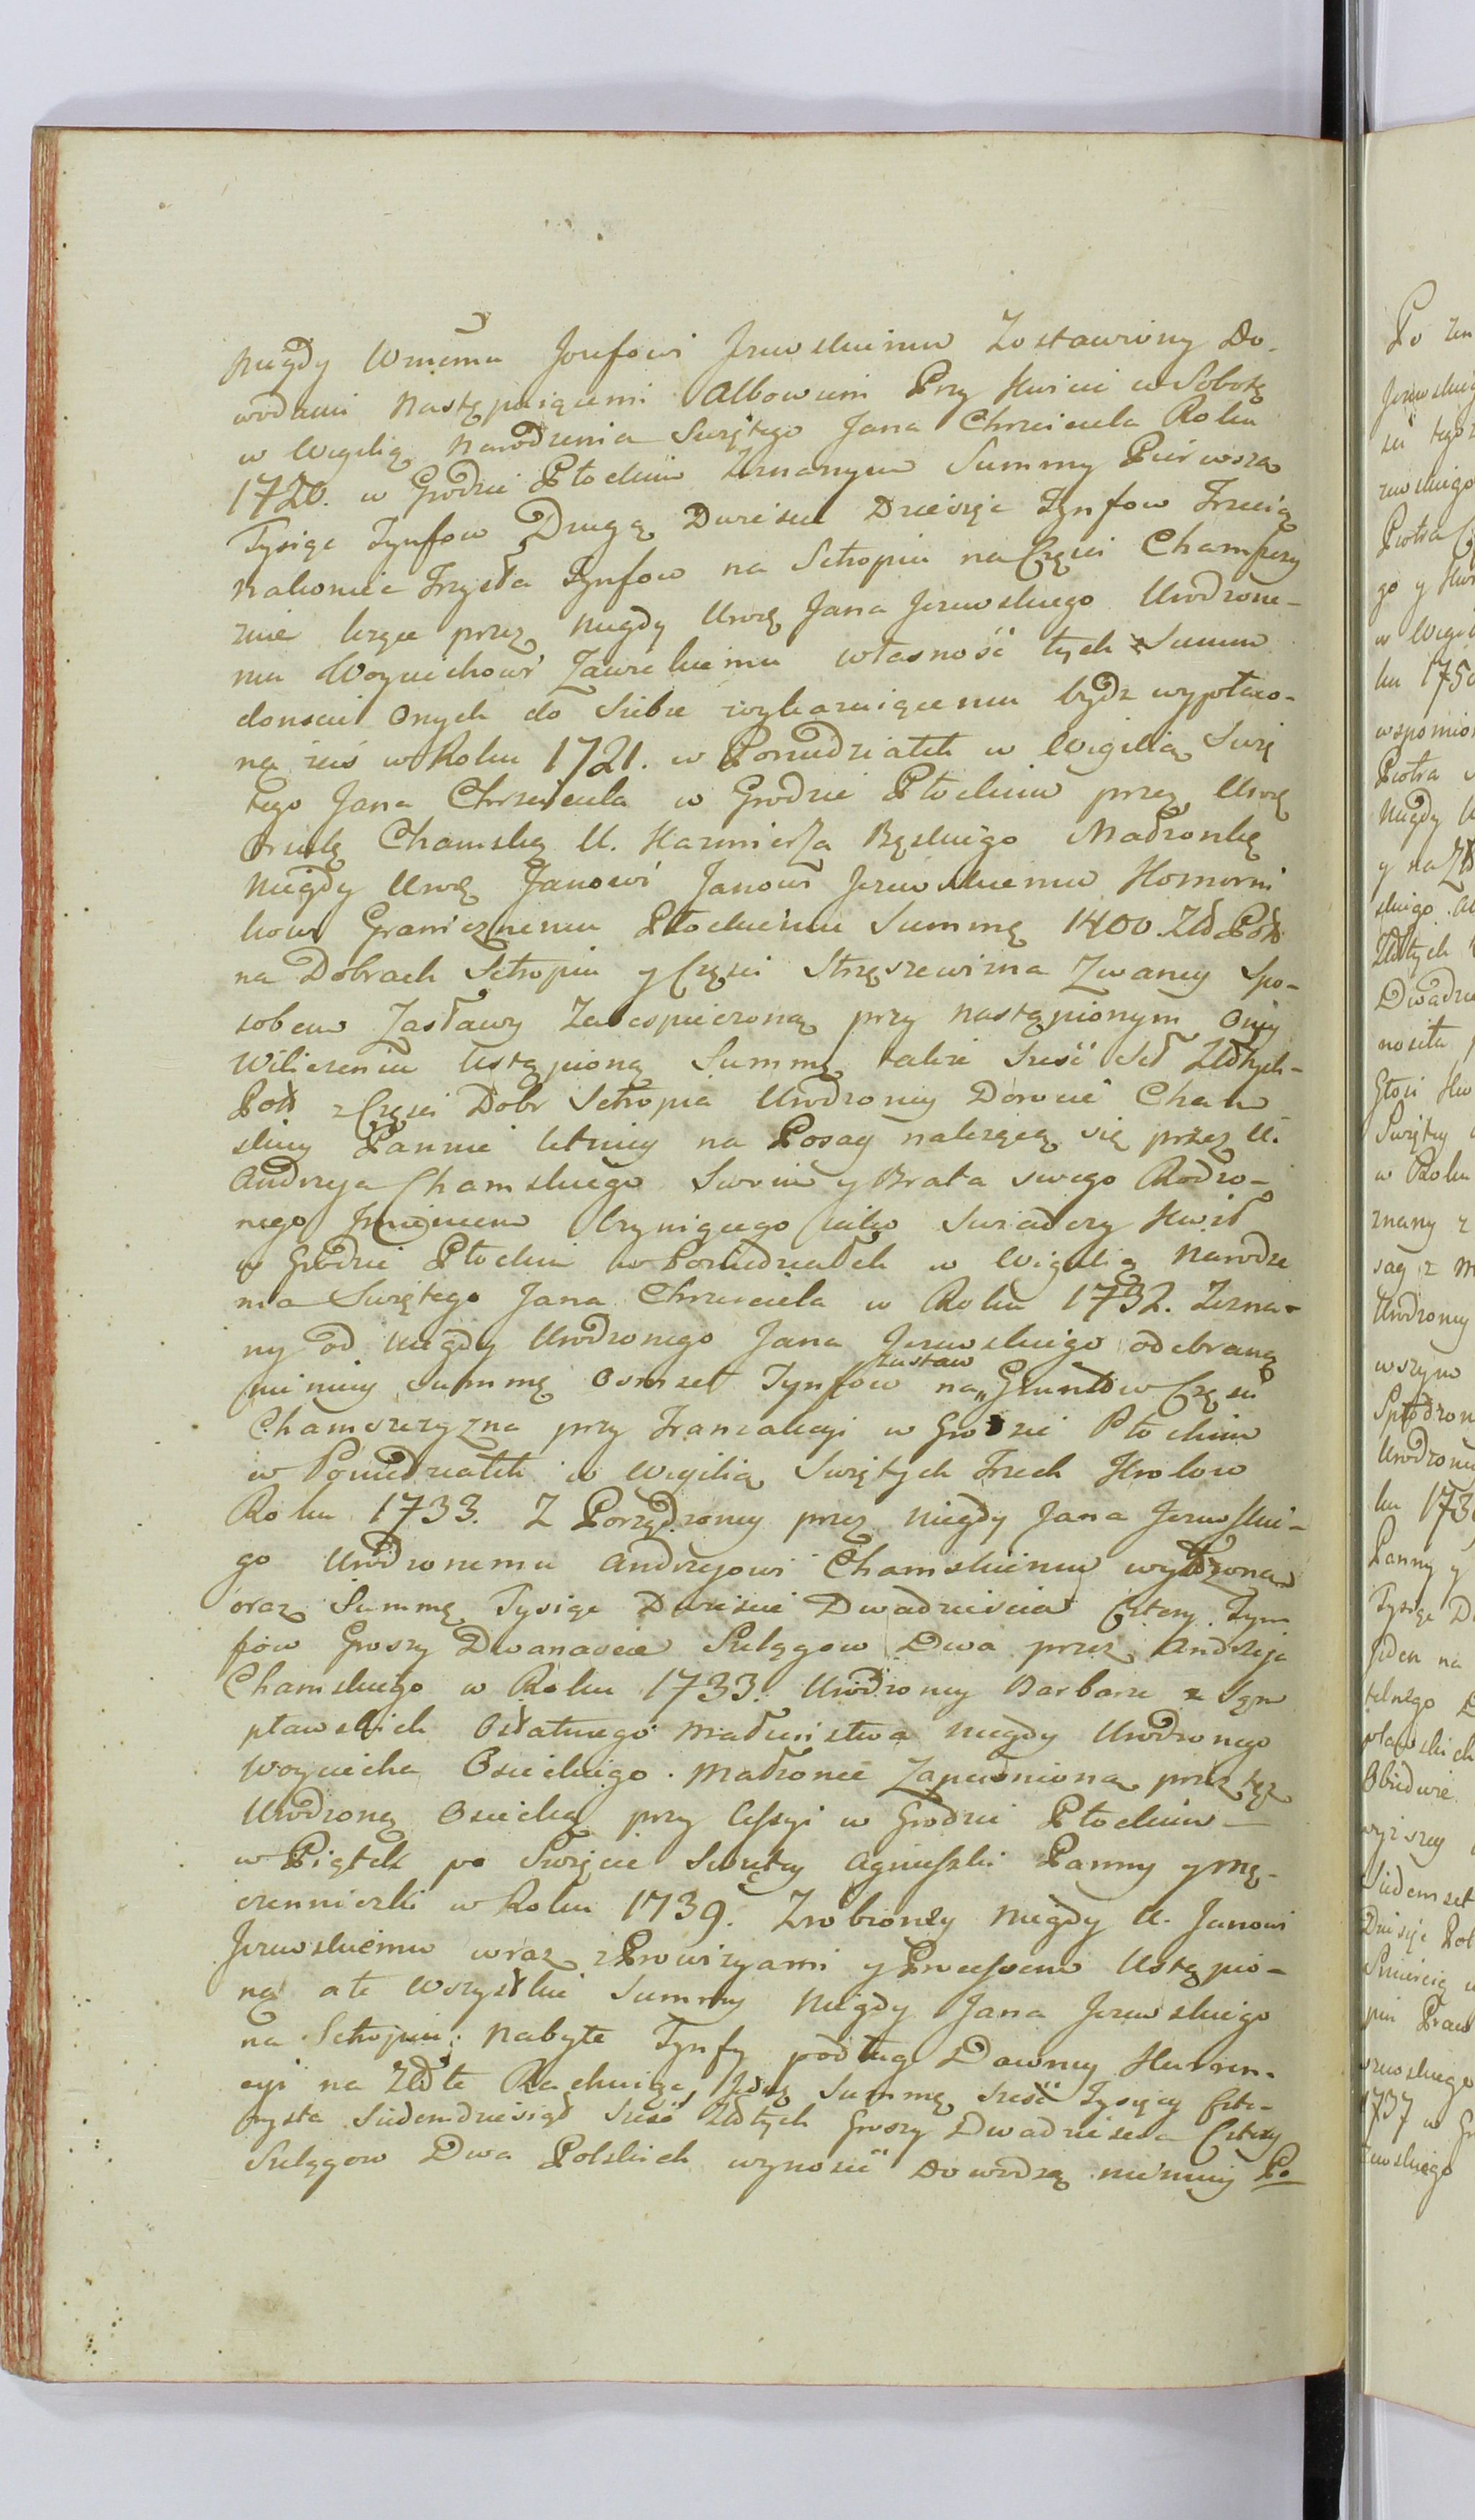 Niegdy Wmemu Jozefowi Jezewskiemu Zostawiony Do-
wodami Następuiącemi Albowiem Przy Kwicie w Sobotę
w Wigilią Narodzenia Swiętego Jana Chrzciciela Roku
1720. w Grodzie Płockim Zeznanym Summy Pierwszą
Tysiąc Tynfow Drugą Dwiescie Dziesięć Tynfow Trzecią
nakoniec Trzysta Tynfow na Setropiu na Części Chamszczy
znie lezące przez Niegdy Urod Jana Jezewskiego Urodzone-
mu Woyciechowi Zawickiemu własność tych Summ
donacii Onych do Siebie wykazuiącemu bydz wypłaco-
ną zaś w Roku 1721. w Poniedziałek w Wigilią Swię
tego Jana Chrzciciela w Grodzie Płockim przez Urod
Orszulę Chamską U. Kazmierza Bęskiego Madronkę
Niegdy Urod Janowi Janowi Jezewskiemu Komorni
kowi Graniczneemu Płockiemu Summę 1400 Zło Pols
na Dobrach Setropiu y Części Strzeszewizna Zwaney Spo-
sobem Zastawy Zabespieczoną przy nastąpionym Oney
Wiliczeniu Ustąpioną Summę także Szesc Set Złotych
Pols z Części Dobr Setropia Urodzoney Dorocie Cham
skiey Pannie letniey na Posag należącą się przez U.
Andrzeja Chamskiego Swoim y Brata swego Rodzo-
nego Imieniem Czyniącego iako Swiadczy Kwit
w Grodzie Płockim w Poniedziałek w Wigilią Narodze
nia Swiętego Jana Chrzciciela w Roku 1732. Zezna-
ny od Niegdy Urodzonego Jana Jezewskiego odebraną
niemniey Summę Osmset Tynfow na „Gruntow Części
zastaw
Chamszczyzna przy Tranzakcyi w Grodzie Płockim
w Poniedziałek w Wigilią Swiętych Trzech Krolow
Roku 1733. Z Porządzoney przez Niegdy Jana Jezewskie-
go Urodzonemu Andrzejowi Chamskiemu wyliczoną
oraz Summę Tysiąc Dwiescie Dwadziescia Cztery Tyn
fow Groszy Dwanascie Szelągow Dwa przez Andrzeja
Chamskiego w Roku 1733. Urodzoney Barbarze z Szym
pławskich Ostatniego Małzenstwa Niegdy Urodzonego
Woyciecha Osieckiego. Madronie Zapewnioną przez tęz
Urodzoną Osiecką przy Cessyi w Grodzie Płockim
w Piątek po Swięcie Swiętey Agnieszki Panny y Mę-
czenniczki w Roku 1739. Zrobioney Niegdy U. Janowi
Jezewskiemu wraz z Prowizyami y Processem Ustąpio-
ną a te Wszystkie Summy Niegdy Jana Jezewskiego
na Setropiu Nabyte Tynfy podług Dawney Kurren-
cyi na Złote Rachuiąc, Jedną Summę Szesc Tysięcy Czte-
rysta Siedmdziesiąt Szesc Złotych Groszy Dwadziescia Cztery
Szelągow Dwa Polskich wynosić Dowodzą niemniey Po